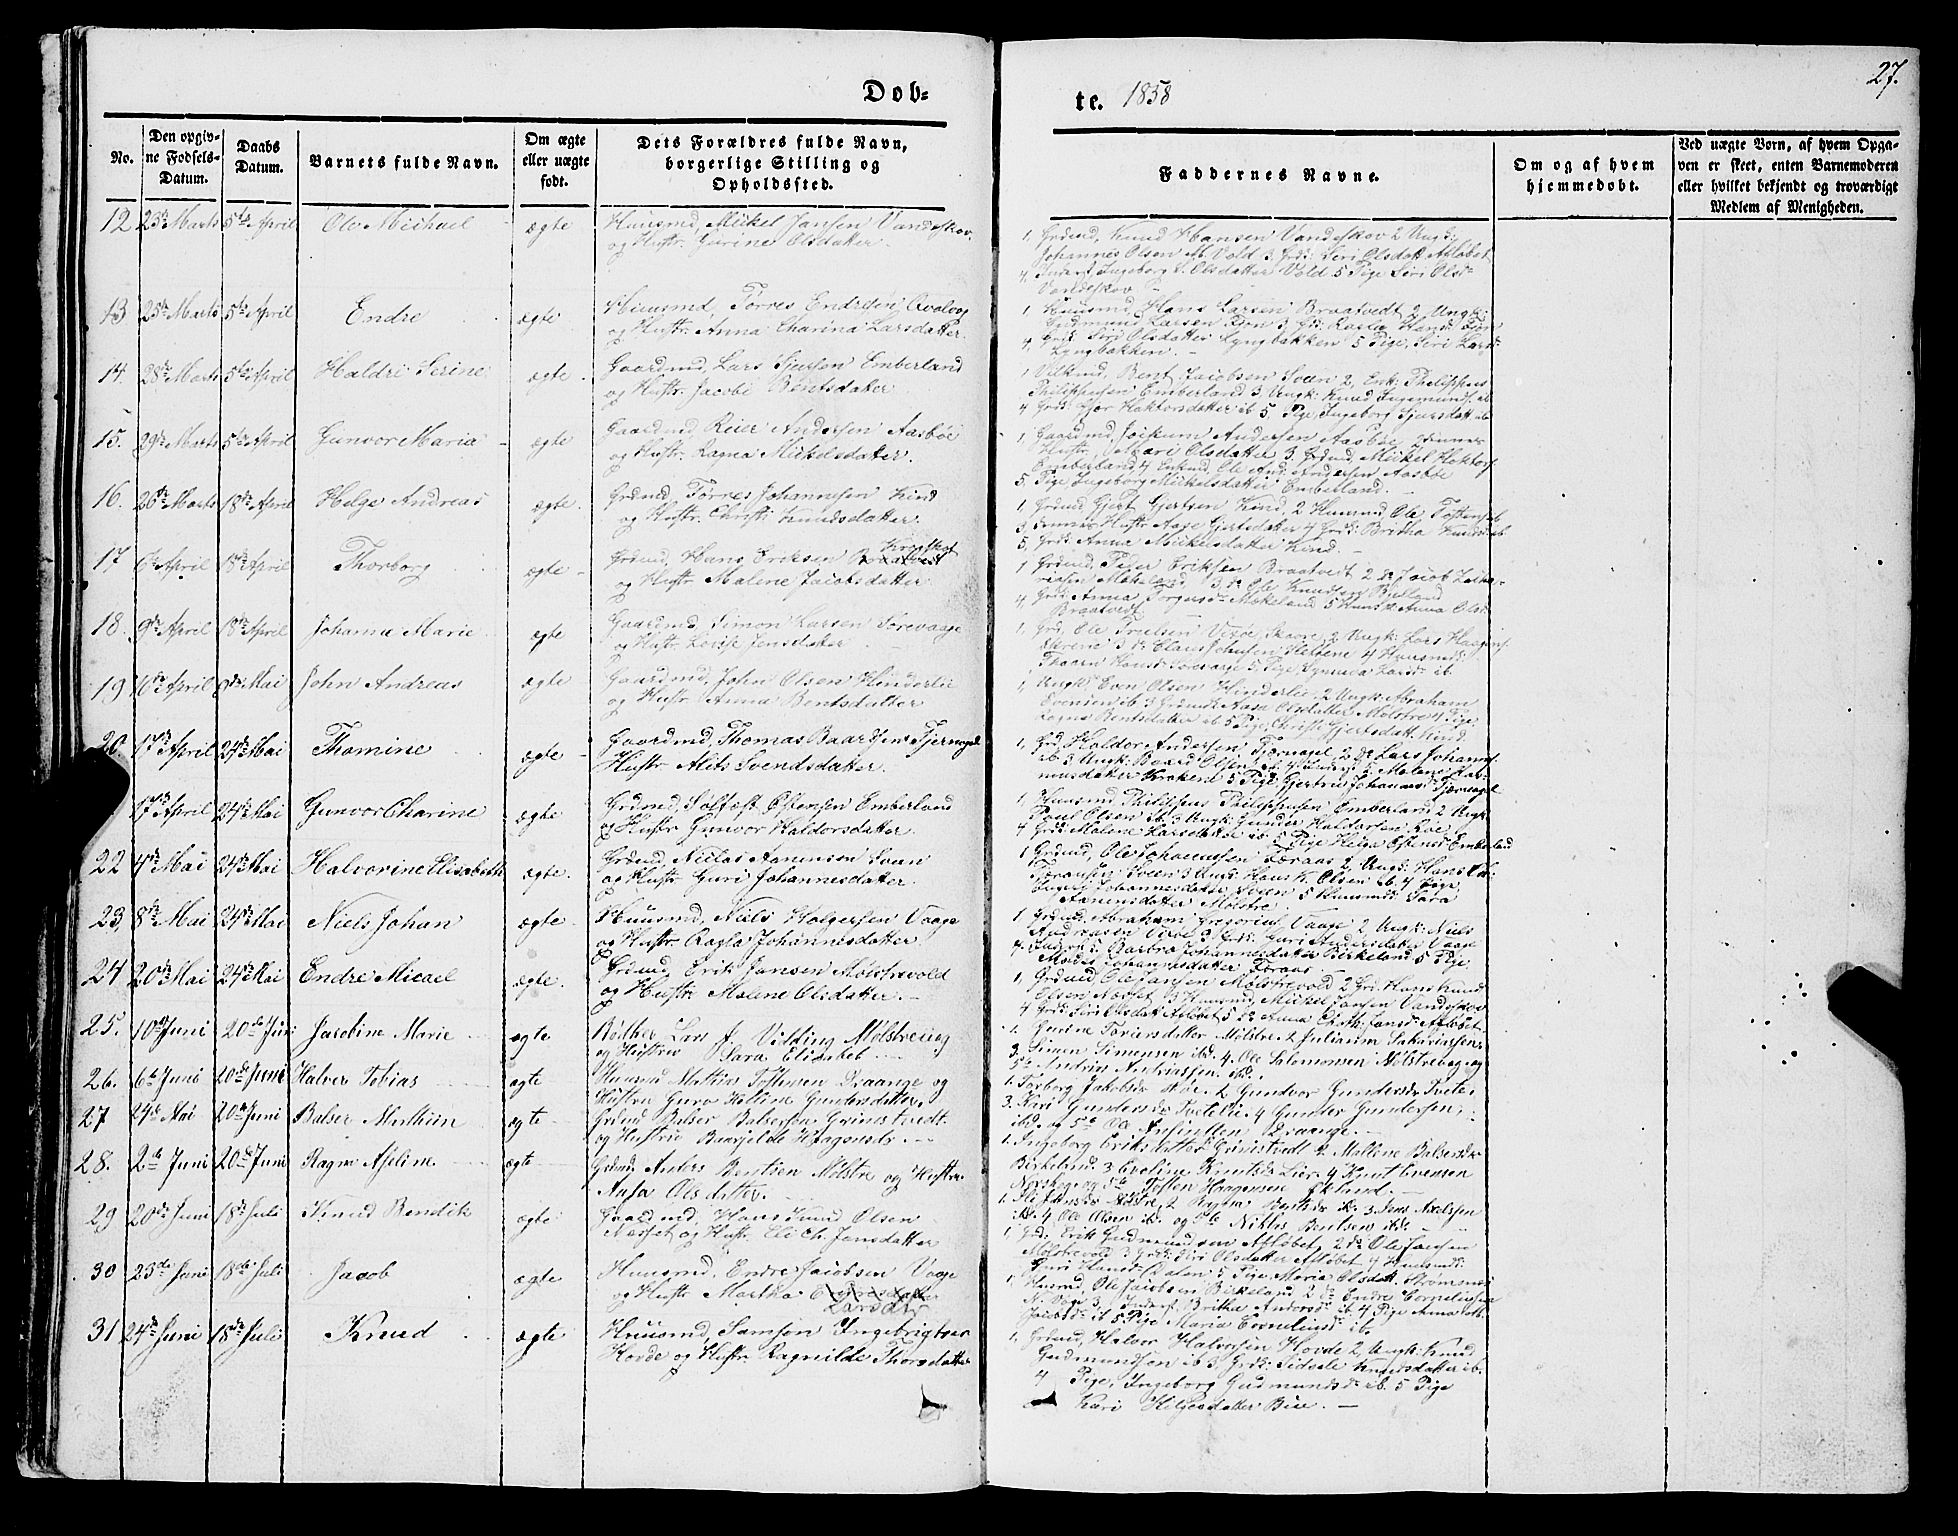 27.
Døb-
te. 1858
No.
Den opgiv-
ne Fødsels-
Datum.
Daabs
Datum.
Barnets fulde Navn.
Om ægte
eller uægte
født.
Dets Forældres fulde Navn,
borgerlige Stilling og
Opholdssted.
Faddernes Navne.
Om og af hvem
hjemmedøbt.
Ved uægte Børn, af hvem Opga-
ven er skeet, enten Barnemoderen
eller hvilket bekjendt og troværdigt
Medlem af Menigheden.
12 23de Marts 5te April Ole Michael ægte Huusmd, Mickel Jansen Vandeskov
og Hustr. Gurine Olsdatter.
1, Grdmd, Knud Hansen Vandeskov 2 Ungk:
Johannes Olsen M. Vold 3 Grdk: Siri Olsdatt Afløbet
4, Ingeborg S. Olsdatter Vold 5 Pige Siri Olsd
Vandeskov
13 25de Marts 5te April Endre ægte Huusmd, Torres Endresen Qvaloog
og Hustr. Anna Charina Larsdatter.
1 Huusmd, Hans Larsen Braatvedt 2 Ungk:
Gudmund Larsen 3 Grdk: Ragla Hansd:
4, Grdk: Siri Olsdatter Lyngbakken 5 Pige, Siri Larsd:
Lyngbakken. -
14. 28de Marts 5te April Haldri Serine ægte Gaardmd, Lars Sjursen Emberland
og Hustr. Jacobi Bentsdatter.
1 Bent Jacobsen Sveen 2, Enk: Philippus
Philippusen Emberland 3 Ungk: Knud Ingemunds. ib
4 Grdk: Haktorsdatter ib 5. Pige, Ingeborg Sjursdatt ib
15. 29de Marts 5te April Gunvor Maria ægte Gaardmd, Reier Andersen Aasbøe
og Hustr. Ragna Mickelsdatter.
1, Gaardmd, Joikum Andersen Aasbøe 2dennes
Hustr. Mari Olsdatter 3 Grdmd, Mickel Haktors.
Emberland 4 Enkmd, Ole And: Andersen Aasbøe
5, Pige, Ingeborg Mickelsdatter Emberland. -
16. 26de Marts 18de April Helge Andreas ægte. Grdmd, Torres Johannesen Kind
og Hustr. Christi Knudsdatter.
1, Grdmd Gjert Gjertsen Kind, 2 Huusmd Ole Tostensen ib
3, dennes Hustr. Aase Gjertsdatter 4 Grdk: Britha Knudsd: ib
5, Grdk: Anna Mickelsdatter Kind. -
17 6te April 18de April Thorborg ægte Grdmd, Hans Eriksen Braatvedt
og Hustr. Malene Jacobsdatter
1 Grdmd, Peder Eriksen Braatvedt 2 do Jacob Zacha-
riasen Mokeland 3 do Ole Knudsen Bielland
4, Grdk: Anna Torgersdr Mokeland 5 Huusk: Anna Olsd:
Braatvedt
18. 9de April 18de April Johanne Marie ægte Gaardmd, Simon Larsen Sørevaage
og Hustr. Lovise Jensdatter.
1, Grd, Ole Truelsen Vixøe, 2 Ungk: Lars Haagens.
3 do Claus Johnsen 4 Huusmds:
Hansd: Sørevaage 5 Pige, Larsd: ib
19 16de April 9de Mai John Andreas ægte Gaardmd, John Olsen Hinderlie
og Hustr. Anna Bentsdatter
1, Ungk: Even Olsen Hinderlie, 2 Ungk: Abraham
Evensen ib 3 Grdmds Aasa Olsdatter Mølstre 4 Pige
Ragna Bentsdatter ib 5 Pige, Christi Gjertsdatt. Kind.
20 17de April 24de Mai Thomine ægte Gaardmd, Thomas Baardsen Tjernagel
Hustr. Alets Svendsdatter.
1, Grd, Haldor Andersen Tjernagel 2 do Lars Johanns.
ib 3 Ungk: Baard Olsen ib 4 Malene Ras-
musdatter Vraken 5 Pige Gjertrud Johannesd: Tjernagel
17de April 24de Mai Gunvor Charine ægte Grdmd, Solfest Østensen Emberland
og Hustr. Gunvor Haldorsdatter.
1, Huusmd Philippus Philippusen Emberland 2 Ungk:
Poul Olsen ib 3 Ungk: Gunder Haldorsen Røe
4 Grdk: Malene Larsdatter ib 5 Pige Helga Østensd: Emberland
22 4de Mai 24de Mai Halvorine Elisabeth ægte. Grdmd, Niclas Aanensen Sveen
og Hustr. Guri Johannesdatter.
1 Grdmd, Ole Johannessen Føraas 2, Ungk: Hans Ch:
Sveen 3 Ungk: Hans K. Olsen ib. 4 Pige,
Ingeri Johannesdatter Sveen 5 Huusmds: Sara
Aanensdatter Mølstre. -
23, 8de Mai 24de Mai Niels Johan ægte Huusmd, Niels Holgersen Vaage
og Hustr. Ragla Johannesdatter
1, Grdmd, Abraham Gregorius Vaage 2 Ungk: Niels
Andreasen Vixøe 3 Grdk: Guri Andersdatter Vaage
4, Barbra Johannesdatter Birkeland 5 Pige
Johannesdatter Føraas -
24 20de Mai 24de Mai Endre Micael ægte. Grdmd, Erik Jansen Mølstrevold
og Hustr Malene Olsdatter. -
1, Grdmd Ole Jansen Mølstrevold 2 Grd: Hans Knud
Olsen Næsset 3 Huusmd, Mickel Jansen Vandeskov
4 Grdk: Siri Olsdatt Afløbet 5 do Anna Chath: Jansd: Afløbet
25. 10de Juni 20de Juni Jacobine Marie ægte Bødker Lars J. Vilding Mølstrevig
og Hustrue Sara Elisabeb
1. Gurine Toriersdatter Mølstre 2 Julianna Sakariassen
3. Simen Simensen ibd. 4. Ole Salomonsen Mølstrevig og
5te Andrias Andriassen ibd.
26. 6te Juni 20de Juni Halver Tobias ægte Huusmd Mathias Tostensen Draange og
Hustru Guro Helline Gundersdatter.
1. Torborg Jakobsdr Røe. 2 Gundvor Gundersdr Tvete
3. Kari Gundersdr Tvetelie. 4 Gunder Gundersen,
ibd. og 5te Ole Draange. -
27 24de Mai 20de Juni Balser Mathiin ægte Grdmd Balser Balsersen Grindstvedt.
og Hustrue Baarjelde Haagensdr. -
1. Ingeborg Eriksdatter Grinstvedt 2 Malline Balsersdr
Birkeland. 3 Eveline Knutsdr Lier 4 Knut Evensen
Norskog og 5te Tosten Haagensen Ekland. -
28. 2de Juni 20de Juni Ragna Aseline ægte Grdmd Anders Bentsen Mølstre og Hustru
Aasa Olsdatter.
1. Eli Jansdr Mølstre, 2 Ragna Bentsdr ibd: 3 Jens Axelssen
ibd. 4 Ole Olsen ibd. og 5te Niklas Bentsen ibd.
29 20de Juni 18de Juli Knud Bendik ægte Gaardmd, Hans Knud Olsen
Næsset og Hustr. Eli Ch. Jansdatter
1, Grd: Erik Gudmundsen Afløbet, 2 do Ole Jansen
Mølstrevold 3 Grdk: Siri Olsdatter Afløbet 4 Huusmds
Guri Hansd: Dalen 5 Pige Maria Olsdatt. Strømsnes
30 23de Juni 18de Juli Jacob ægte Huusmd, Endre Jacobsen Vaage
og Hustr. Martha
Larsdtr
1, Huusmd, Ole Jacobsen Birkeland 2 do Endre Corneliussen
N. Vage 3, Britha Andersd: ib, 4 Pige Anna
Jacobsd: ib 5 Pige Maria Corneliusd: ib
31 24de Juni 18de Juli Knud ægte Huusmd, Samson Ingebrigtsen
Hovde og Hustr. Ragnilde Thorsdatter
1, Grdmd, Halvor Halvorsen Hovde 2 Ungk: Knud
Gudmundson ib 3 Grdk: Sidsele Knudsdatter ib.
4 Pige, Ingeborg Gudmundsdr ib. 5 Pige
Kari Helgesdatter Bue. -